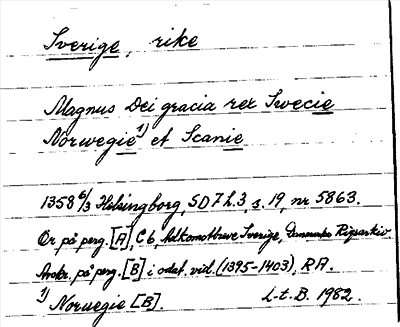 Sverige, rike
Magnus Dei gracia rex Swecie
Norwegie 1) et Scanie
1358 6/3 Helsingborg, SD 7 h.3, s. 19, nr 5863.
Or på perg. [A], C6, Adkomstbreve Sverige, Danmarks Rigsarkiv
Avskr. på perg. [B] i odat. vid. (1395-1403), RA.
1) Noruegie [B].
L-t. B. 1982.